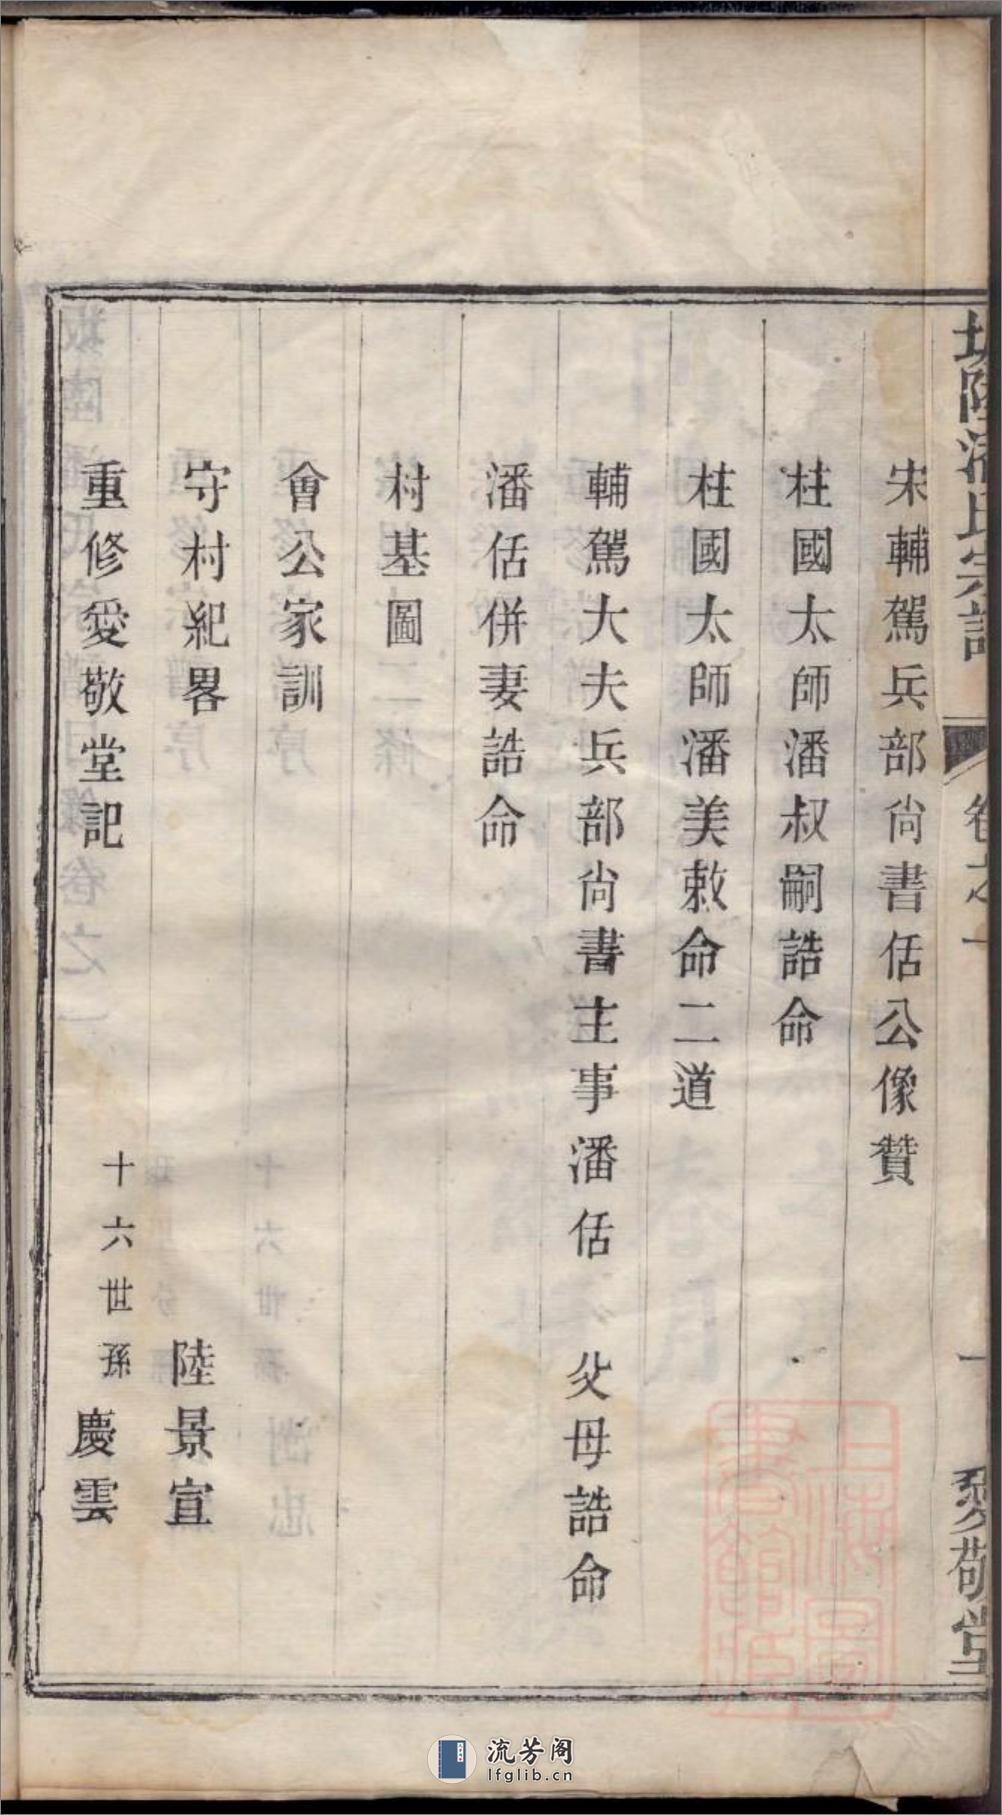 宋輔駕兵部尚書佸公像贊
柱國太師潘叔嗣誥命
柱國太師潘美敕命二道
輔駕大夫兵部尚書主事潘佸 父母誥命
潘佸併妻誥命
村基圖
會公家訓
守村紀畧 陸景宣
重修愛敬堂記 十六世孫 慶雲
陸潘氏宗譜 卷之一 一 愛敬堂
流芳阁
lfglib.cn